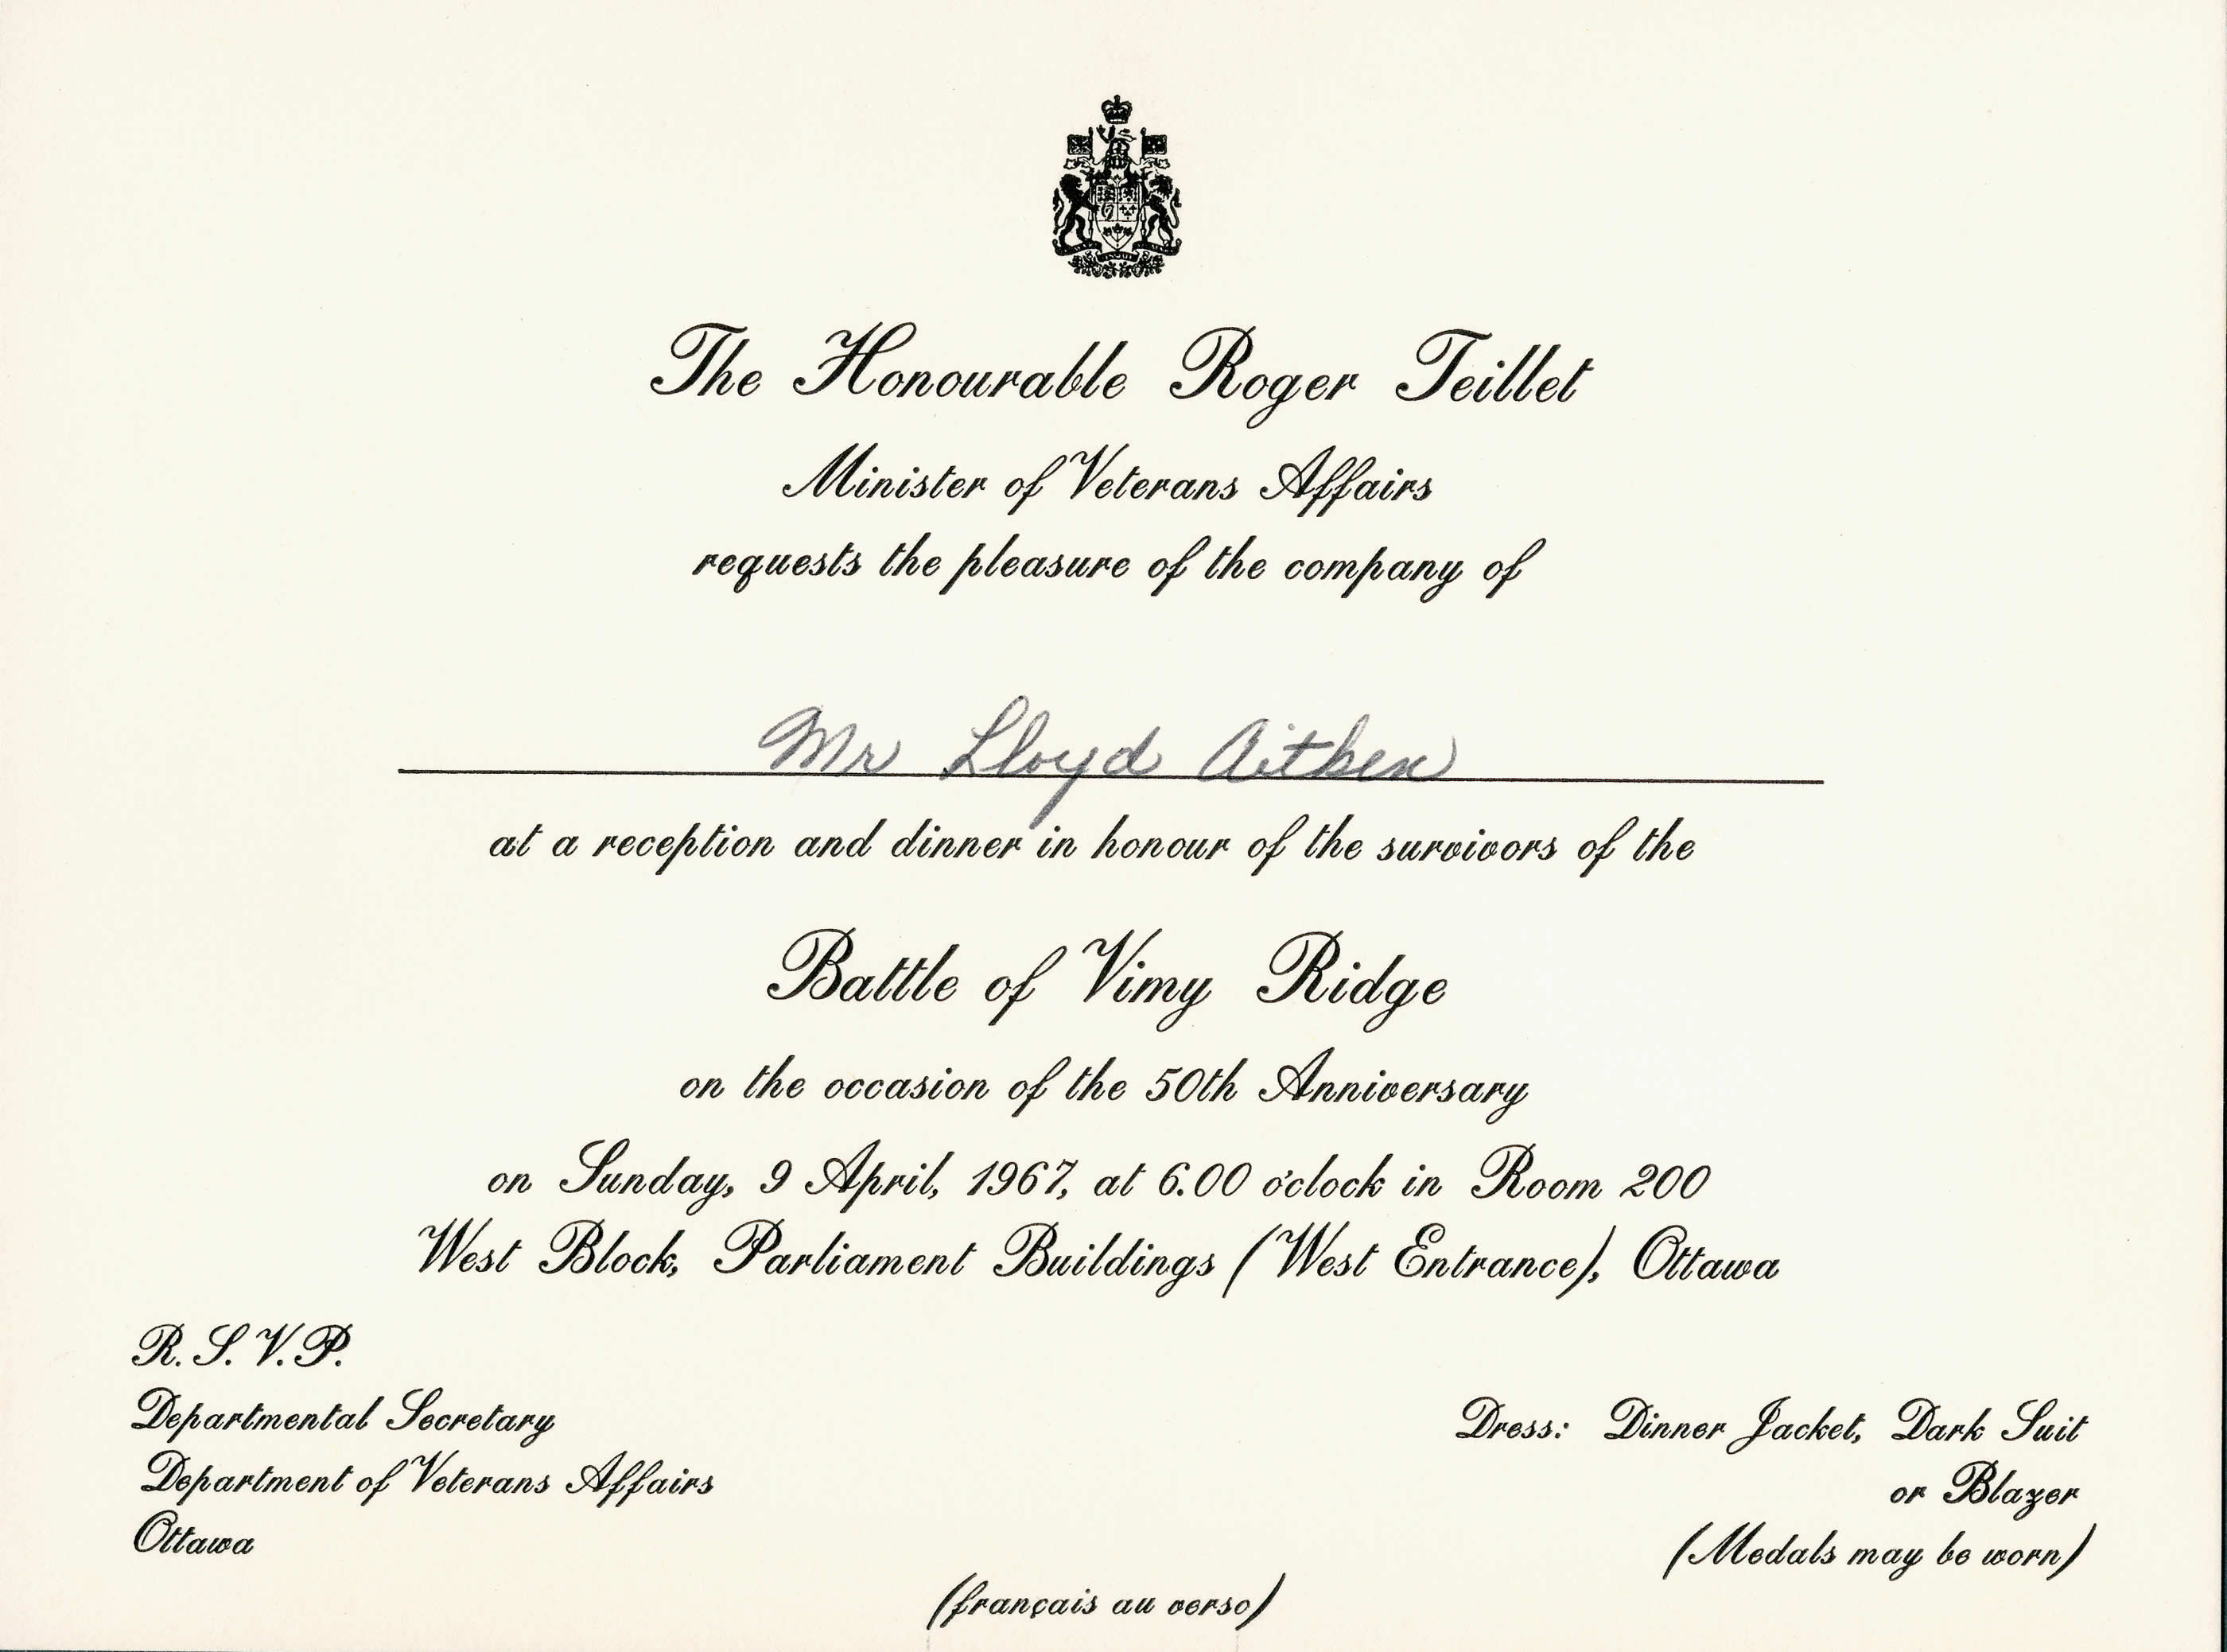 The Honourable Roger Teillet
Minister of Veterans Affairs
requests the pleasure of the company of
Mr Lloyd Aitken
at a reception and dinner in honour of the survivors of the
Battle of Vimy Ridge
on the occasion of the 50th Anniversary
on Sunday, 9 April, 1967, at 6.00 o'clock in Room 200
West Block, Parliament Buildings (West Entrance), Ottawa
R. S. V. P.
Departmental Secretary
Department of Veterans Affairs
Ottawa
Dress: Dinner Jacket, Dark Suit
or Blazer
(Medals may be worn)
(français au verso)